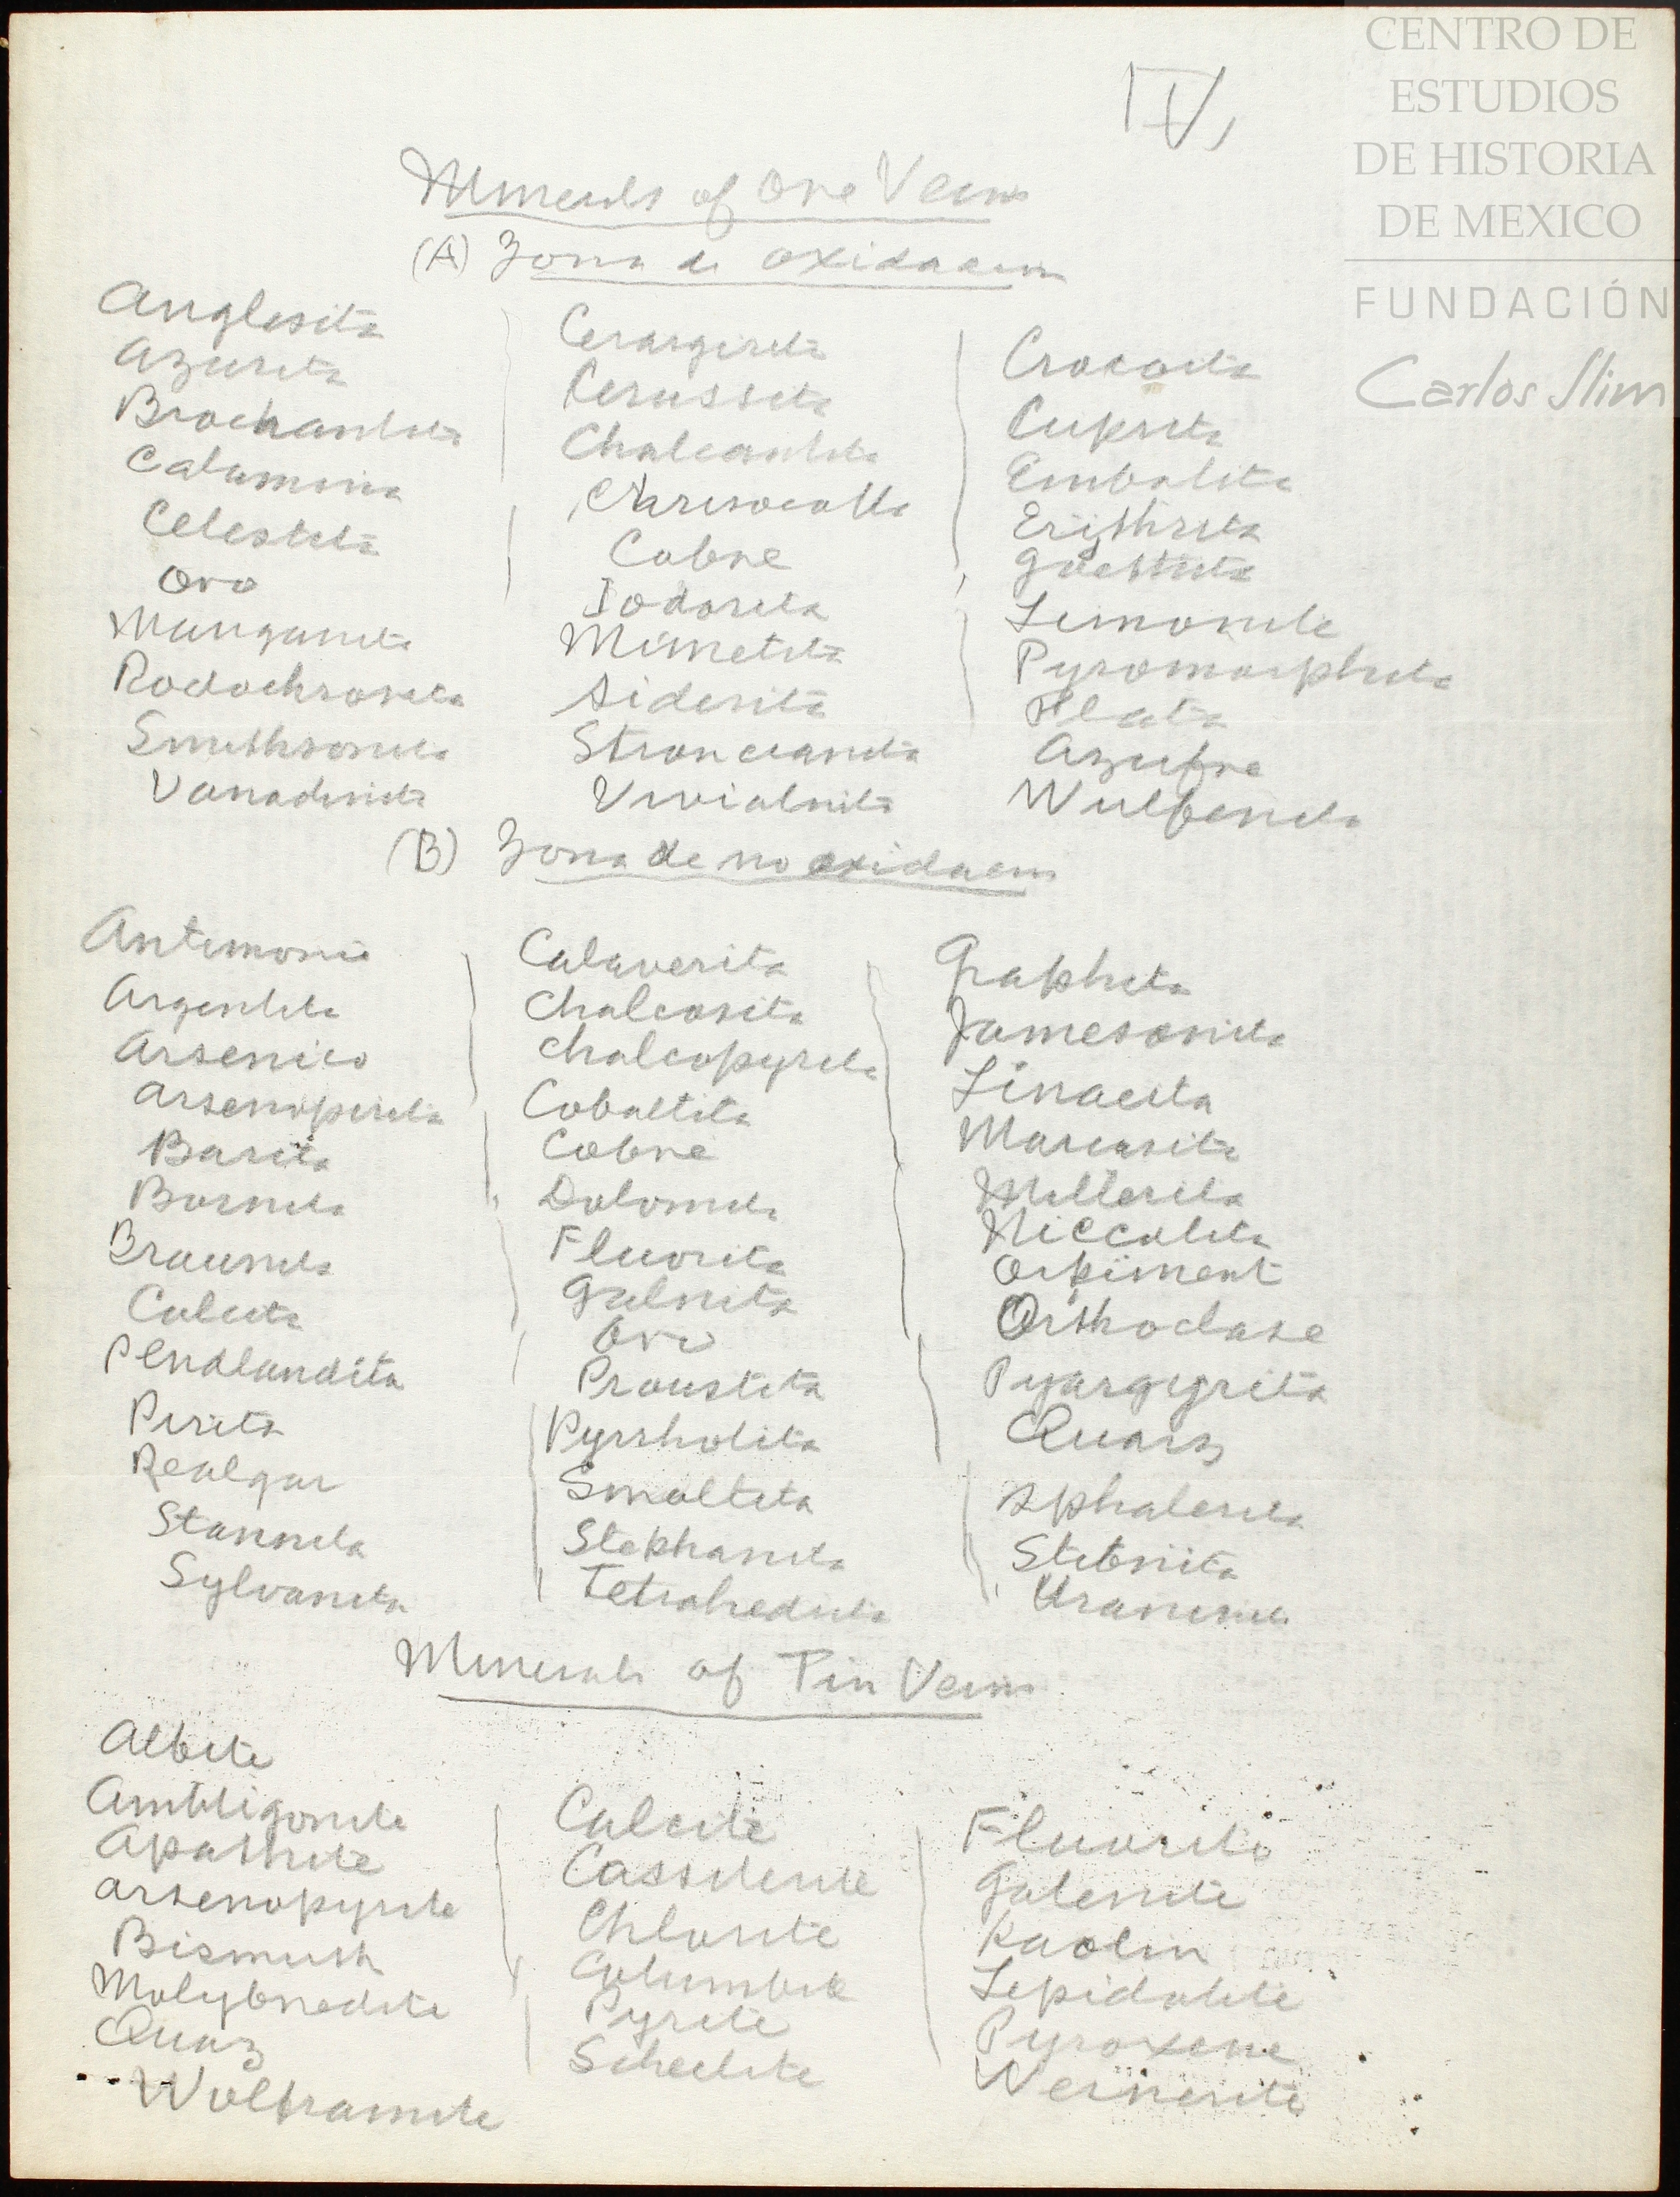 CENTRO DE
ESTUDIOS
DE HISTORIA
DE MEXICO
FUNDACIÓN
Carlos Slim
IV,
Minerals of Ore Veins
(A) Zona de oxidacion
Anglesita Cerargirita Crocoita
Azurita Cerussita Cuprita
Brochantita Chalcantita Embolita
Calamina Chrisocolla Erithrita
Celestita Cobre Goethita
Oro Iodorita Limonite
Manganita Mimetita Pyromorphita
Rodochrosita Siderita Plata
Smithsonita Stroncianita Azufre
Vanadinita Vivialnita Wulfenita
(B) Zona de no oxidacion
Antimonio Calaverita Graphita
Argentita Chalcosita Jamesonita
Arsenico Chalcopyrita Linaeita
Arsenopirita Cobaltita Marcasita
Barita Cobre Millerita
Bornita Dolomita Niccolita
Braunita Fluorita Orpiment
Calcita Galnita Orthoclase
Pendlandita Oro Pyargyrita
Pirita Proustita Quarz
Realgar Pyrrholita Sphalerita
Stannita Smaltita Stibnita
Sylvanita Stephanita Uraninit
Tetrahedrita
Minerals of Tin Veins
Albite
Ambligonite Calcite Fluorite
Apathite Cassiterite Galenite
Arsenopyrite Chlorite Kaolin
Bismuth Columbite Lepidolite
Molybnedite Pyrite Pyroxene
Quaz Scheelite Wernerite
Wolframite